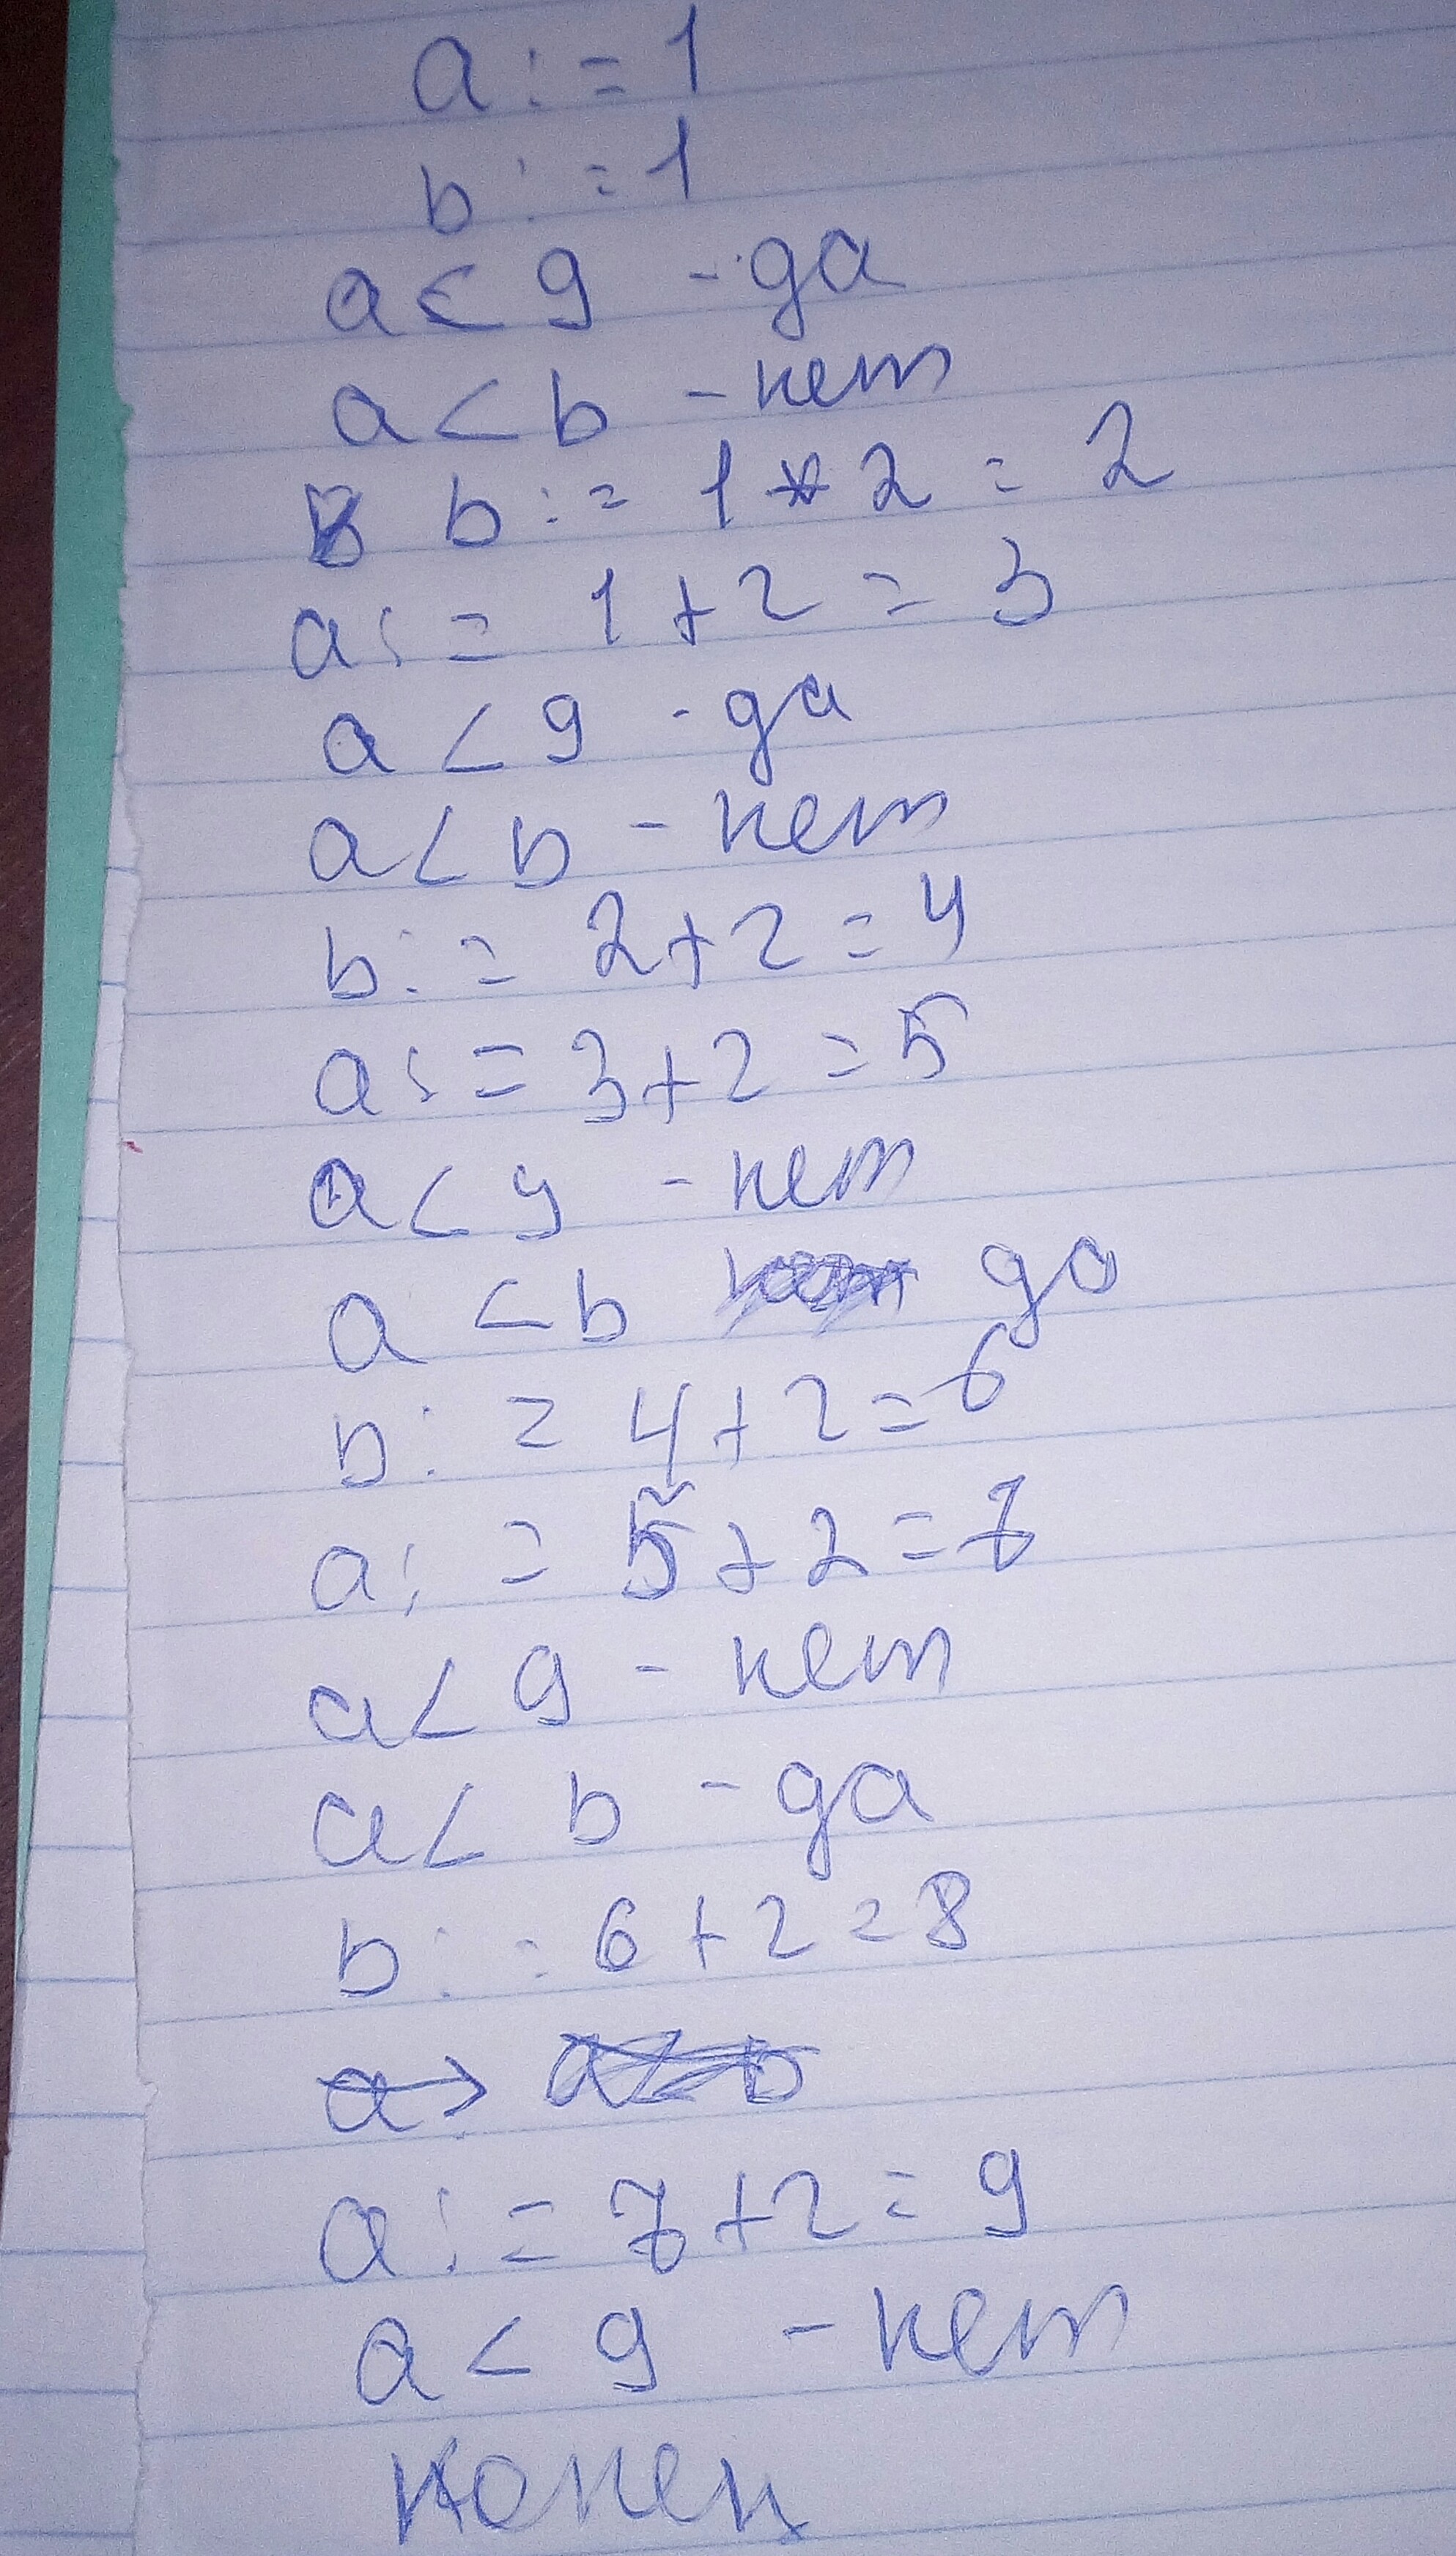 a := 1
b := 1
a < 9 - да
a < b - нет
b := 1 * 2 = 2
a := 1 + 2 = 3
a < 9 - да
a < b - нет
b := 2 + 2 = 4
a := 3 + 2 = 5
a < 9 - нет
a < b да
b := 4 + 2 = 6
a := 5 + 2 = 7
a < 9 - нет
a < b - да
b := 6 + 2 = 8
a := 7 + 2 = 9
a < 9 - нет
конец